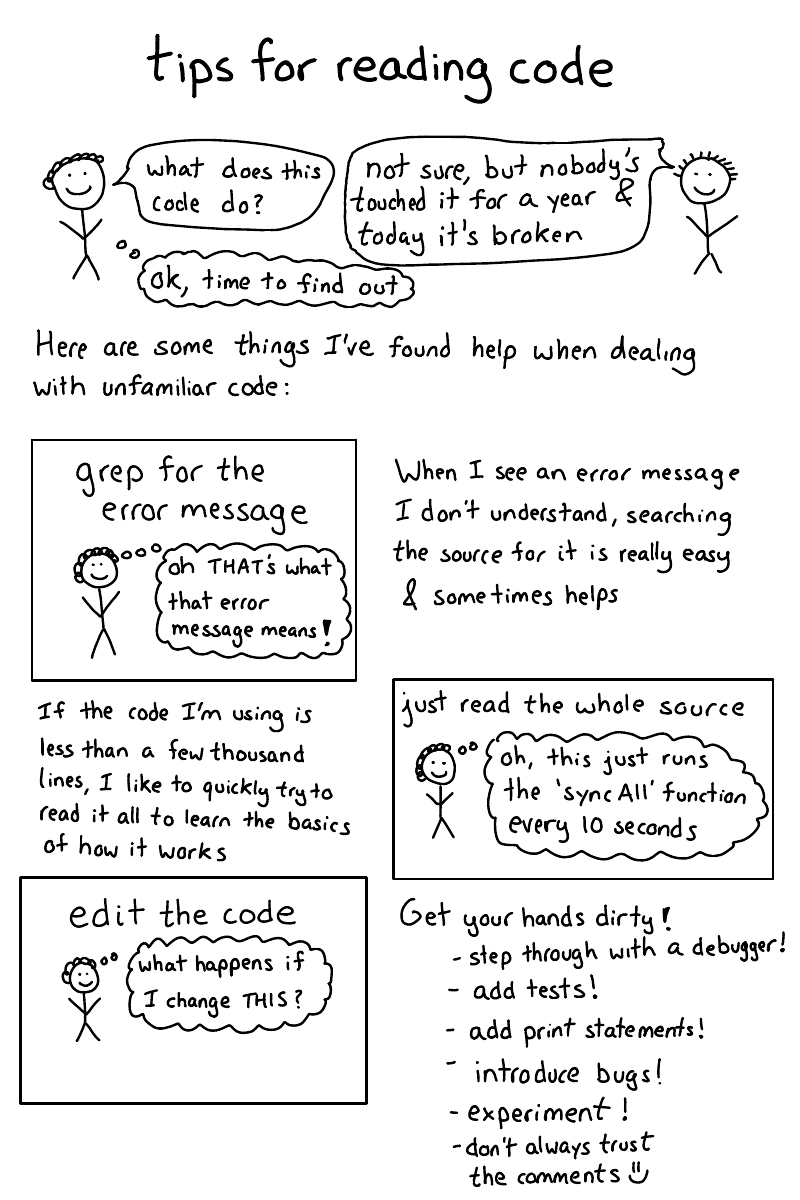 tips for reading code
what does this
code do?
not sure, but nobody's
touched it for a year &
today it's broken
ok, time to find out
Here are some things I've found help when dealing
with unfamiliar code:
grep for the
error message
oh THAT's what
that error
message means!
When I see an error message
I don't understand, searching
the source for it is really easy
& sometimes helps
If the code I'm using is
less than a few thousand
lines, I like to quickly try to
read it all to learn the basics
of how it works
just read the whole source
oh, this just runs
the 'syncAll' function
every 10 seconds
edit the code
what happens if
I change THIS?
Get your hands dirty!
- step through with a debugger!
- add tests!
- add print statements!
- introduce bugs!
- experiment!
- don't always trust
the comments